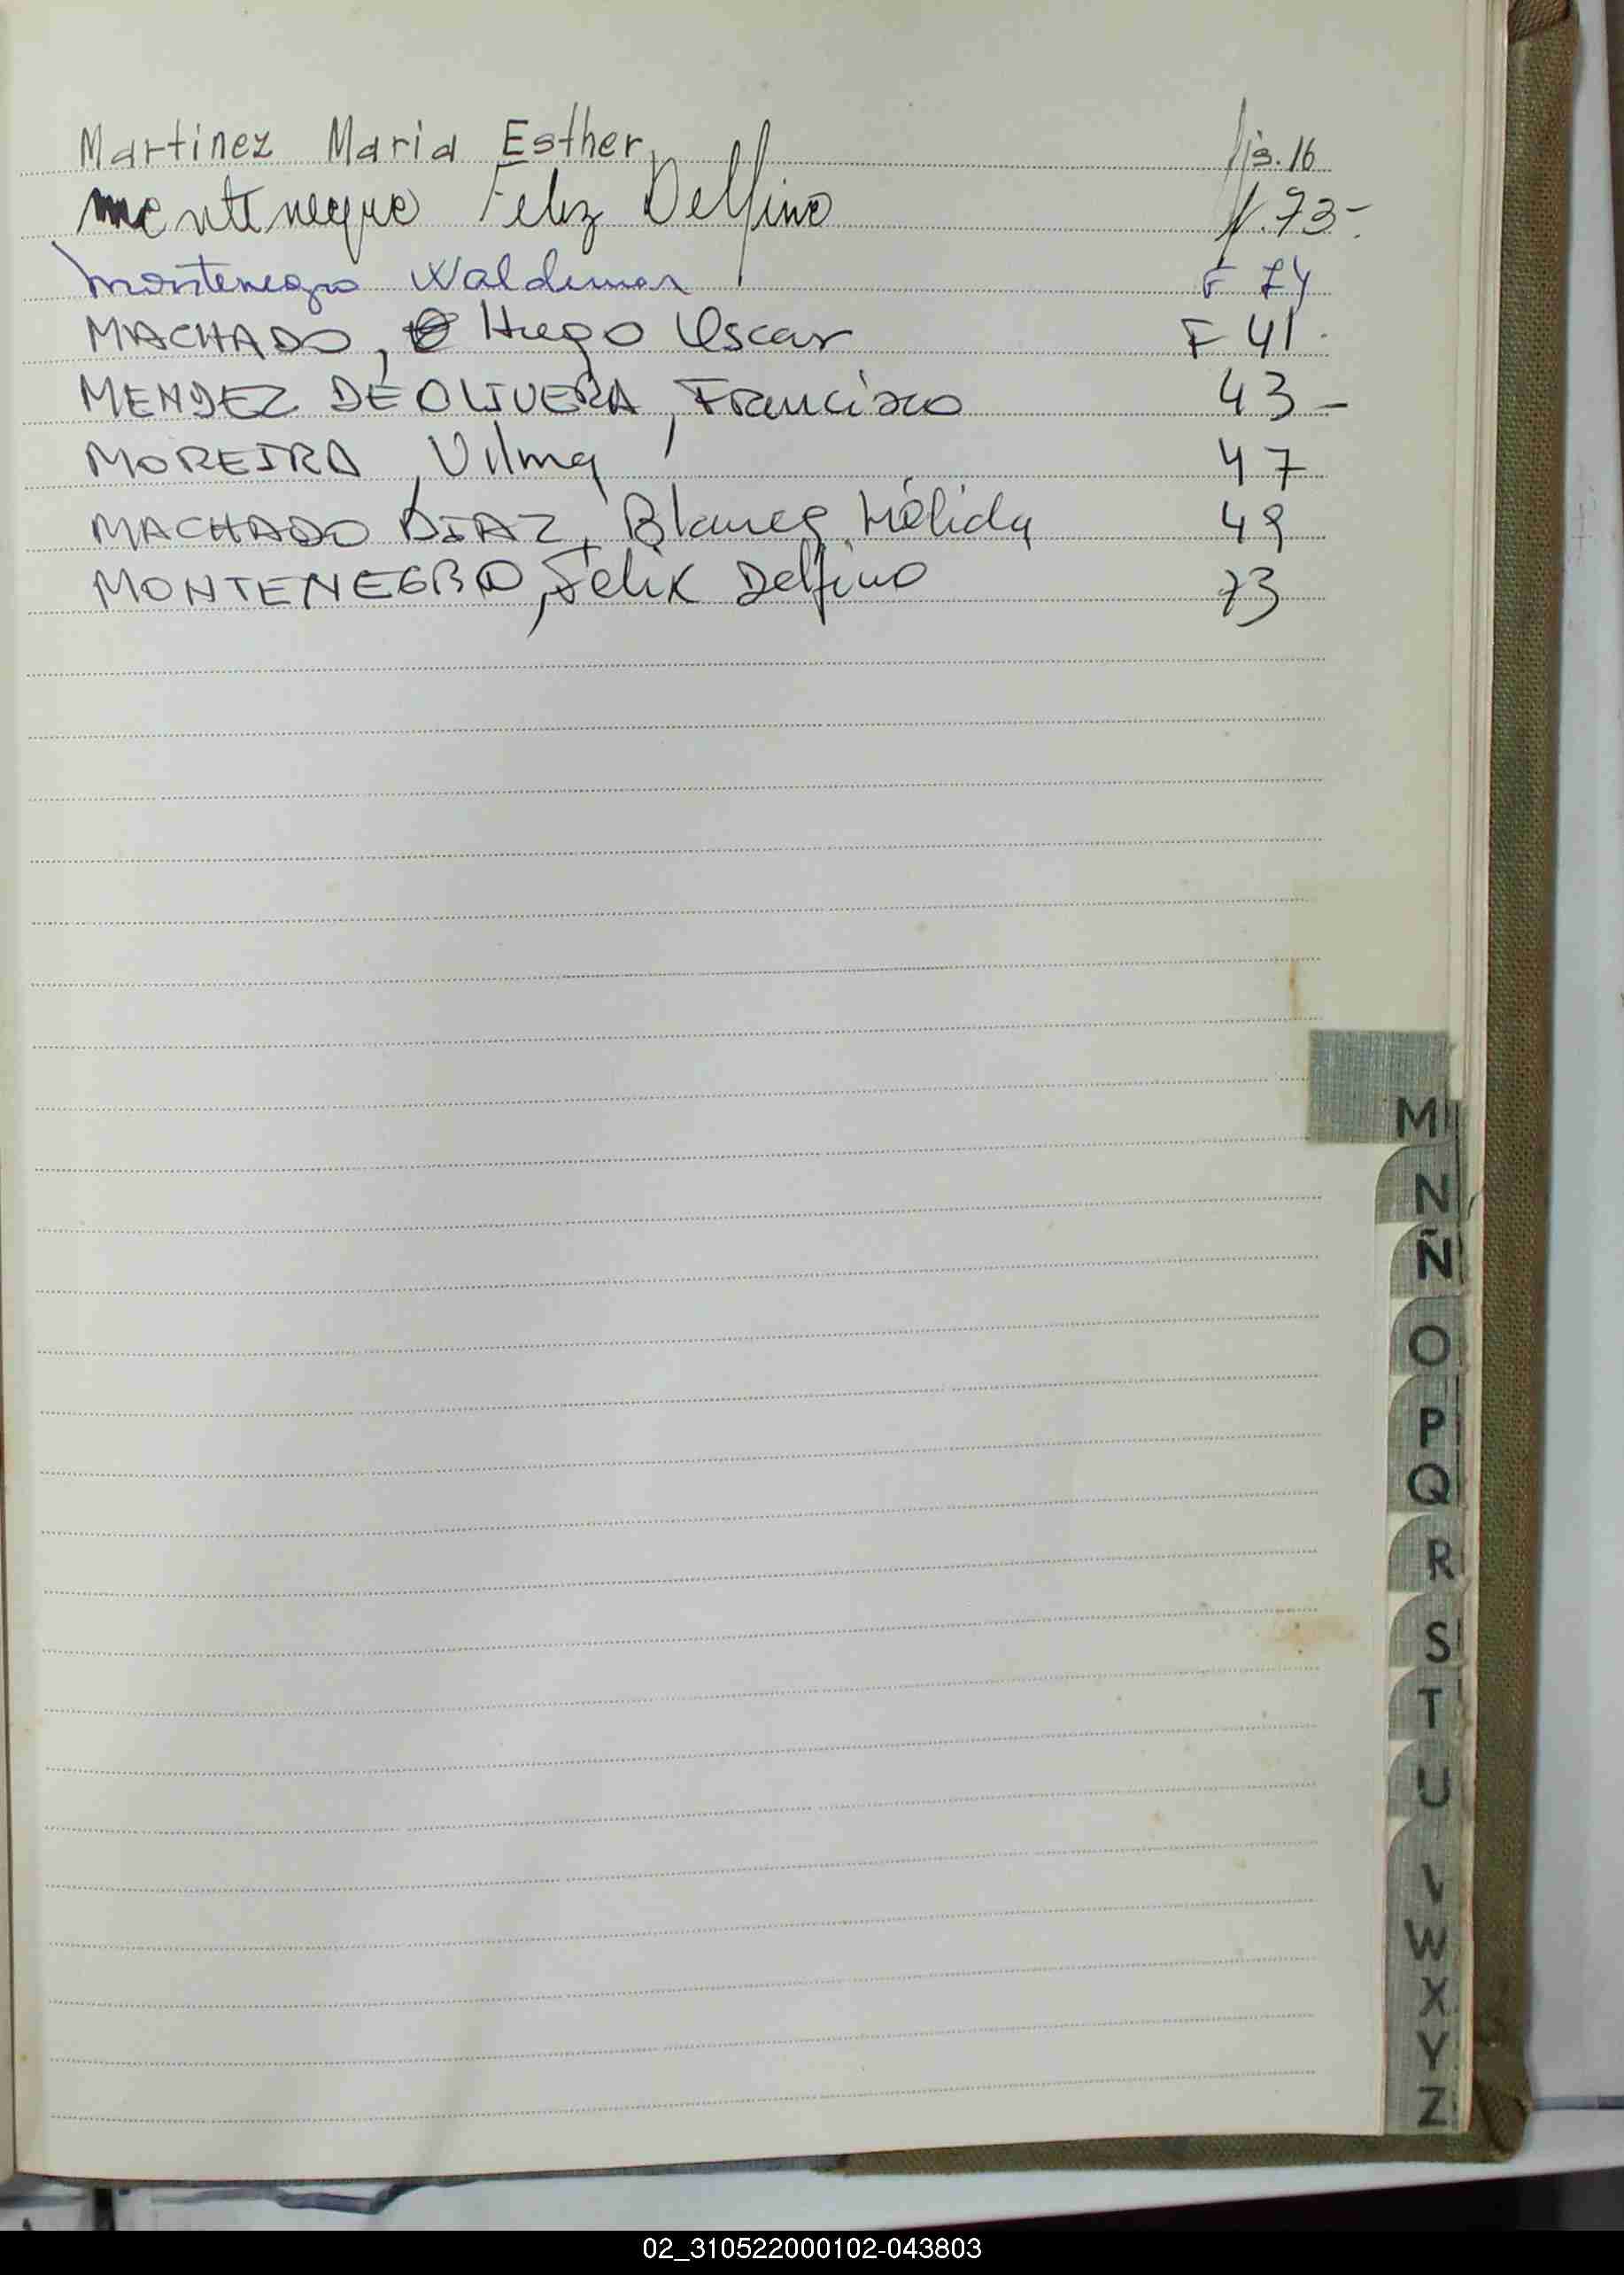 Martinez Maria Esther fjs. 16
Montenegro Feliz Delfino f. 73-
Montenegro Waldemar F 74
MACHADO, Hugo Oscar F 41.
MENDEZ DE OLIVERA, Francisco 43-
MOREIRA, Vilma 47
MACHADO DIAZ, Blanca Nélida 49
MONTENEGRO, Felix Delfino 73
M
N
Ñ
O
P
Q
R
S
T
U
V
W
X
Y
Z
02_310522000102-043803